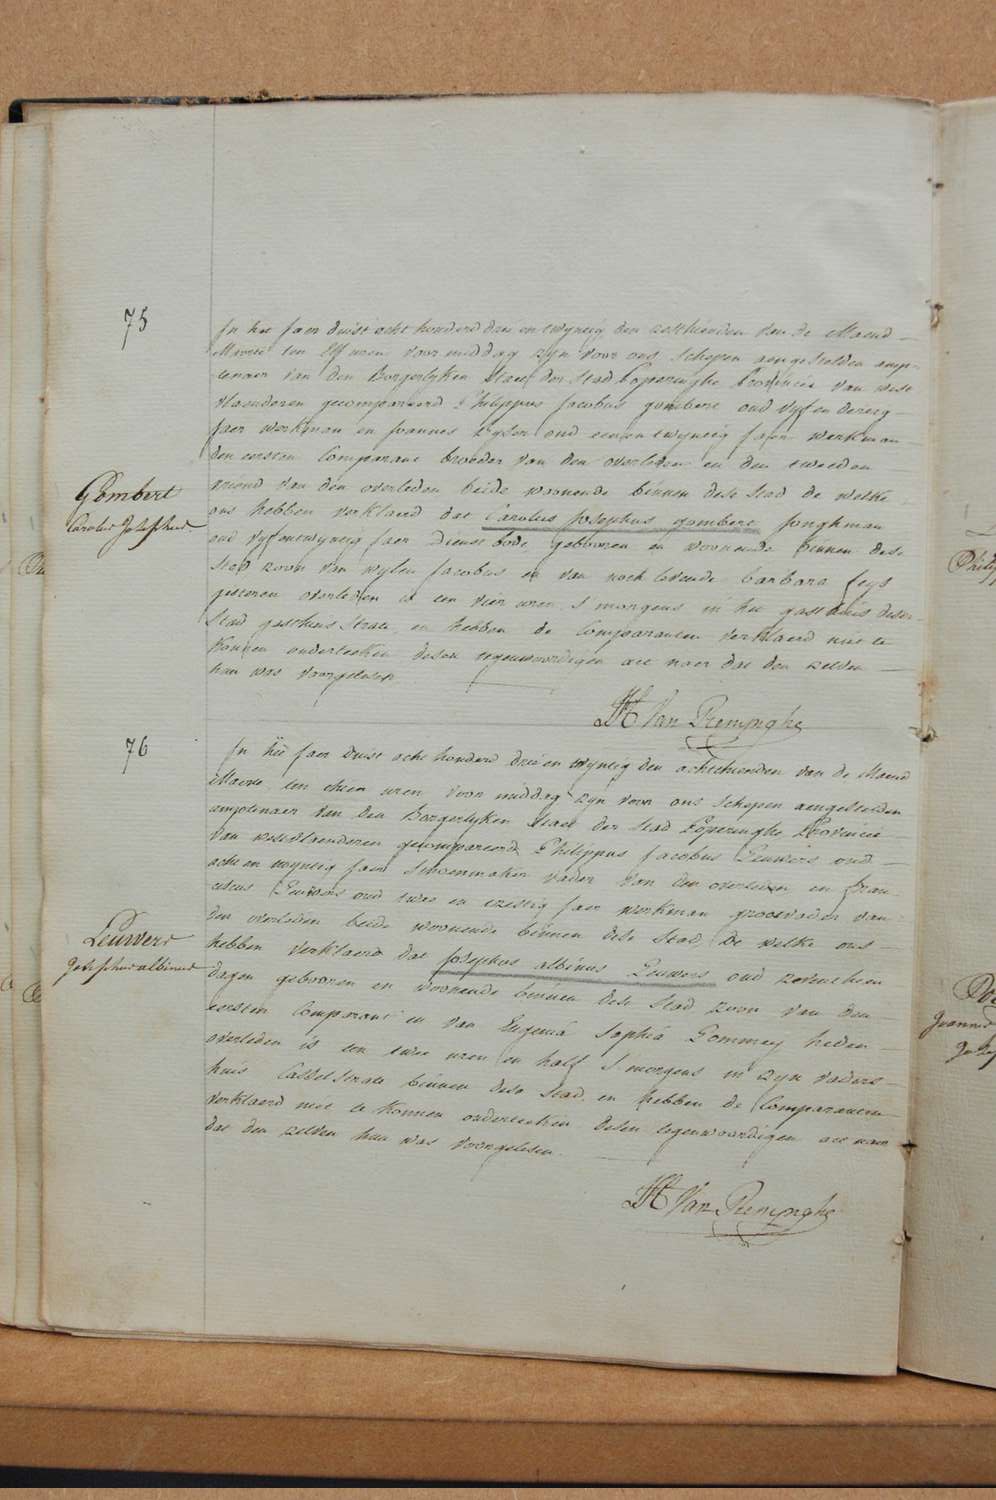 75
In het Jaer duist acht honderd drie en twyntig den zesthienden van de Maend
Maerte ten Elf uren voor middag zyn voor ons schepen aengestelden amp-
tenaer van den Borgerlyken Staet der Stad Poperinghe Provincie van west
vlaenderen gecompareerd Philippus Jacobus Gombert oud vyf en dertig
Jaer werkman en Joannes oud eenentwyntig Jaer werkman
den eersten Comparant broeder van den overleden en den tweeden
vriend van den overleden beide woonende binnen dese Stad de welke
Gombert
Carolus Josephus
ons hebben verklaerd dat Carolus Josephus Gombert Jonghman
oud vyfentwyntig Jaer Dienstbode gebooren en woonende binnen dese
Stad zoon van wylen Jacobus en van noch levende barbara feys
gisteren overleden is ten vier uren S'morgens in het gasthuis deser
Stad gasthuis Strate, en hebben de Comparanten verklaerd niet te
konnen onderteeken desen tegenwoordigen act naer dat den zelden
hun was voorgelesen
H Van Renynghe
76
In het Jaer duist acht honderd drie en twyntig den achthienden van de Maend
Maerte ten thien uren voor middag zyn voor ons Schepen aengestelden
amptenaer van den Borgerlyken Staet der Stad Poperinghe Provincie
van westvlaenderen gecompareerd Philippus Jacobus Leuwers oud
acht en twyntig Jaer Schoenmaker vader van den overleden en Fran-
ciscus Leuwers oud twee en zestig Jaer werkman grootvader van
den overleden beide woonende binnen dese Stad, De welke ons
Leuwers
Josephus albinus
hebben verklaerd dat Josephus albinus Leuwers oud zeventhien
dagen gebooren en woonende binnen dese Stad zoon van den
eersten Comparant en van Eugenia Sophia Gommey heden
overleden is ten twee uren en half S'morgens in zyn vaders
huis Cassel Strate binnen dese Stad, en hebben de Comparanten
verklaerd niet te konnen onderteeken desen tegenwoordigen act naer
dat den zelden hun was voorgelesen.
H Van Renynghe